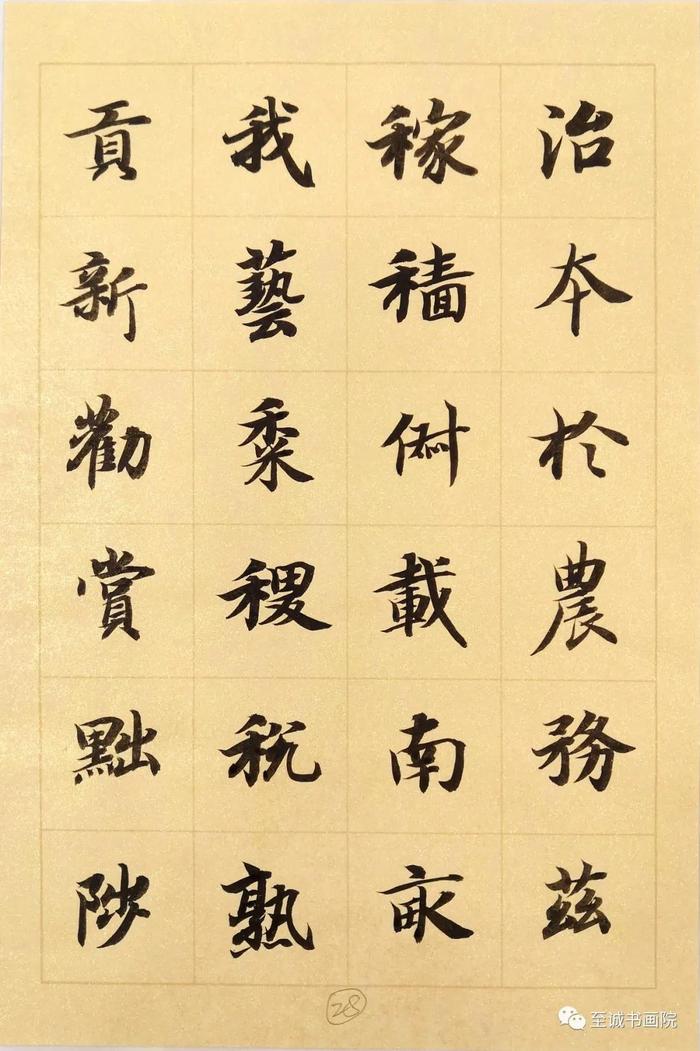 治本於農務茲
稼穡俶載南畝
我藝黍稷稅熟
貢新勸賞黜陟
28
至诚书画院